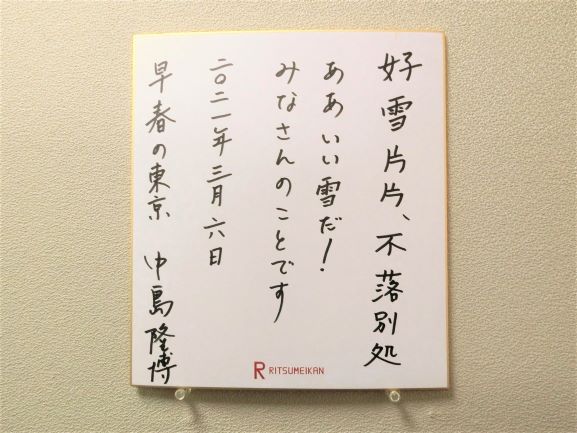 好雪片片、不落別処
ああいい雪だ!
みなさんのことです
二〇二一年三月六日
早春の東京 中島隆博
R RITSUMEIKAN